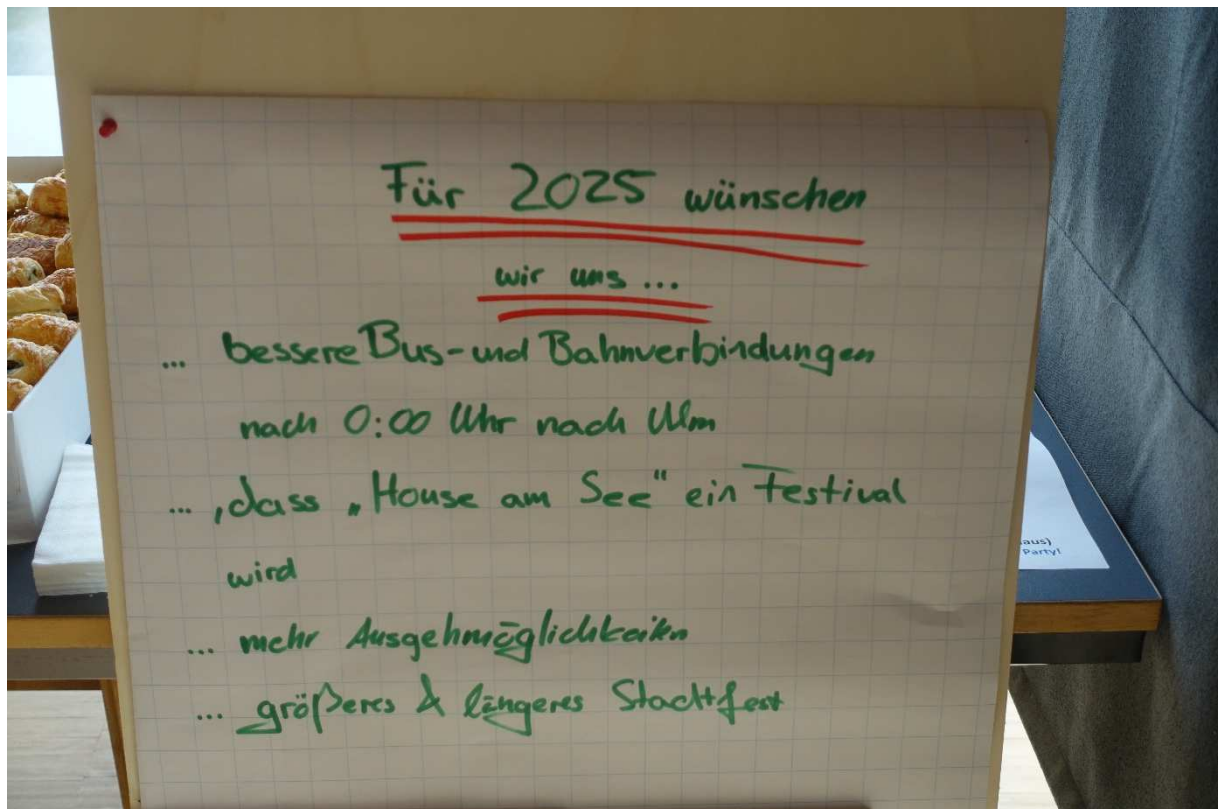 Für 2025 wünschen
wir uns ...
... bessere Bus- und Bahnverbindungen
nach 0:00 Uhr nach Ulm
... , dass „House am See" ein Festival
wird
... mehr Ausgehmöglichkeiten
... größeres & längeres Stadtfest
aus)
Party!